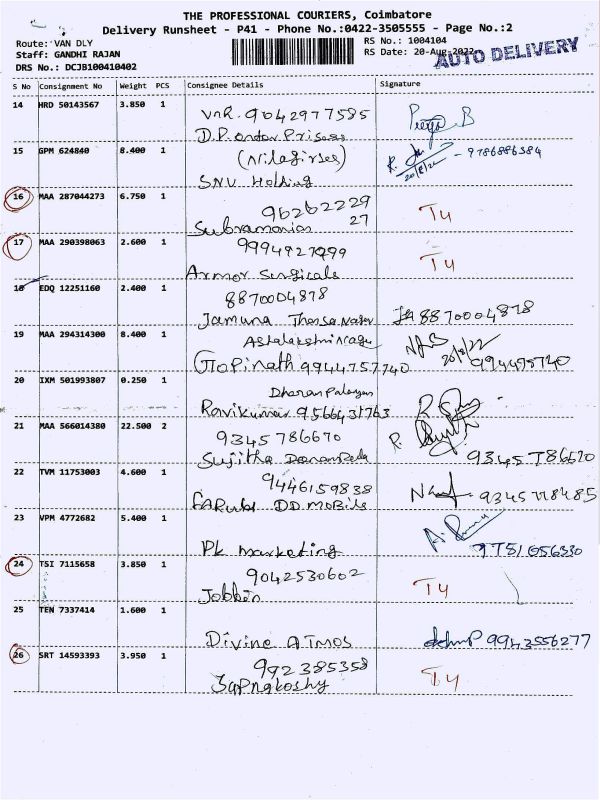 THE PROFESSIONAL COURIERS, Coimbatore
Delivery Runsheet - P41 - Phone No.:0422-3505555 - Page No.:2
Route: VAN DLY
RS No.: 1004104
Staff: GANDHI RAJAN
RS Date: 20-Aug-2022
AUTO DELIVERY
DRS No.: DCJB100410402
S No Consignment No Weight PCS Consignee Details Signature
14 HRD 50143567 3.850 1
VNR. 9042977585
D.P.
15 GPM 624840 8.400 1
(Nilagirses)
R. 20/8/22 - 9786886384
SNV Holding
16 MAA 287044273 6.750 1
9626222927
T4
Subramanias
17 MAA 290398063 2.600 1
T4
Armor Surgicals
18 EDQ 12251160 2.400 1
8870004878
Jamuna Nagar 8870004878
19 MAA 294314300 8.400 1
20/8/22
Gopinath 9944757740
20 IXM 501993807 0.250 1
Ravikumar 9566431763
21 MAA 566014380 22.500 2
9345786670
R.
Sujitha
22 TVM 11753003 4.600 1
9446159838
9345118485
DD MOBILS
23 VPM 4772682 5.400 1
PK marketing
24 TSI 7115658 3.850 1
9042530602
T4
Jobbin
25 TEN 7337414 1.600 1
Divine ATMOS 9943556277
26 SRT 14593393 3.950 1
992385358
T4